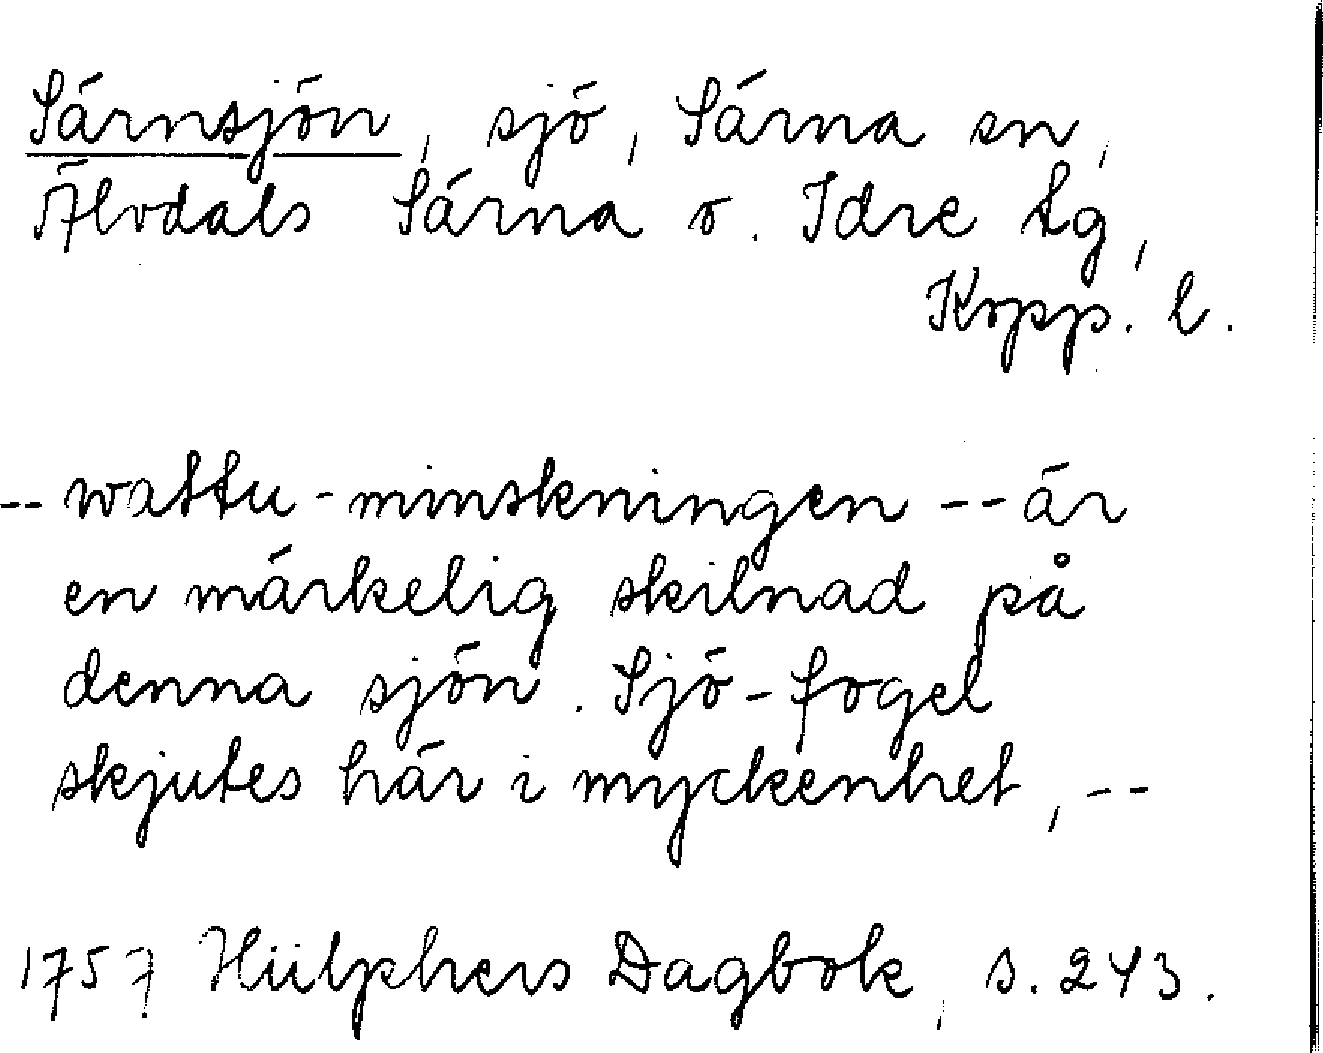 Särnsjön, sjö, Särna sn,
Älvdals Särna o. Idre tg,
Kopp. l.
-- wattu-minskningen -- är
en märkelig skilnad på
denna sjön. Sjö-fogel
skjutes här i myckenhet, --
1757 Hülphers Dagbok, s. 243.